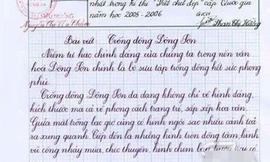 nhất trong kì thi "Viết chữ đẹp" cấp Quốc gia
năm học 2005-2006
Phan Thị Hường
Bài viết Trống đồng Đông Sơn
Niềm tự hào chính đáng của chúng ta trong nền văn
hoá Đông Sơn chính là bộ sưu tập trống đồng hết sức phong
phú.
Trống đồng Đông Sơn đa dạng không chỉ về hình dáng,
kích thước mà cả về phong cách trang trí, sắp xếp hoa văn.
Giữa mặt trống bao giờ cũng có hình ngôi sao nhiều cánh toả
ra xung quanh. Tiếp đến là những hình tròn đồng tâm, hình
vũ công nhảy múa, chèo thuyền, hình chim